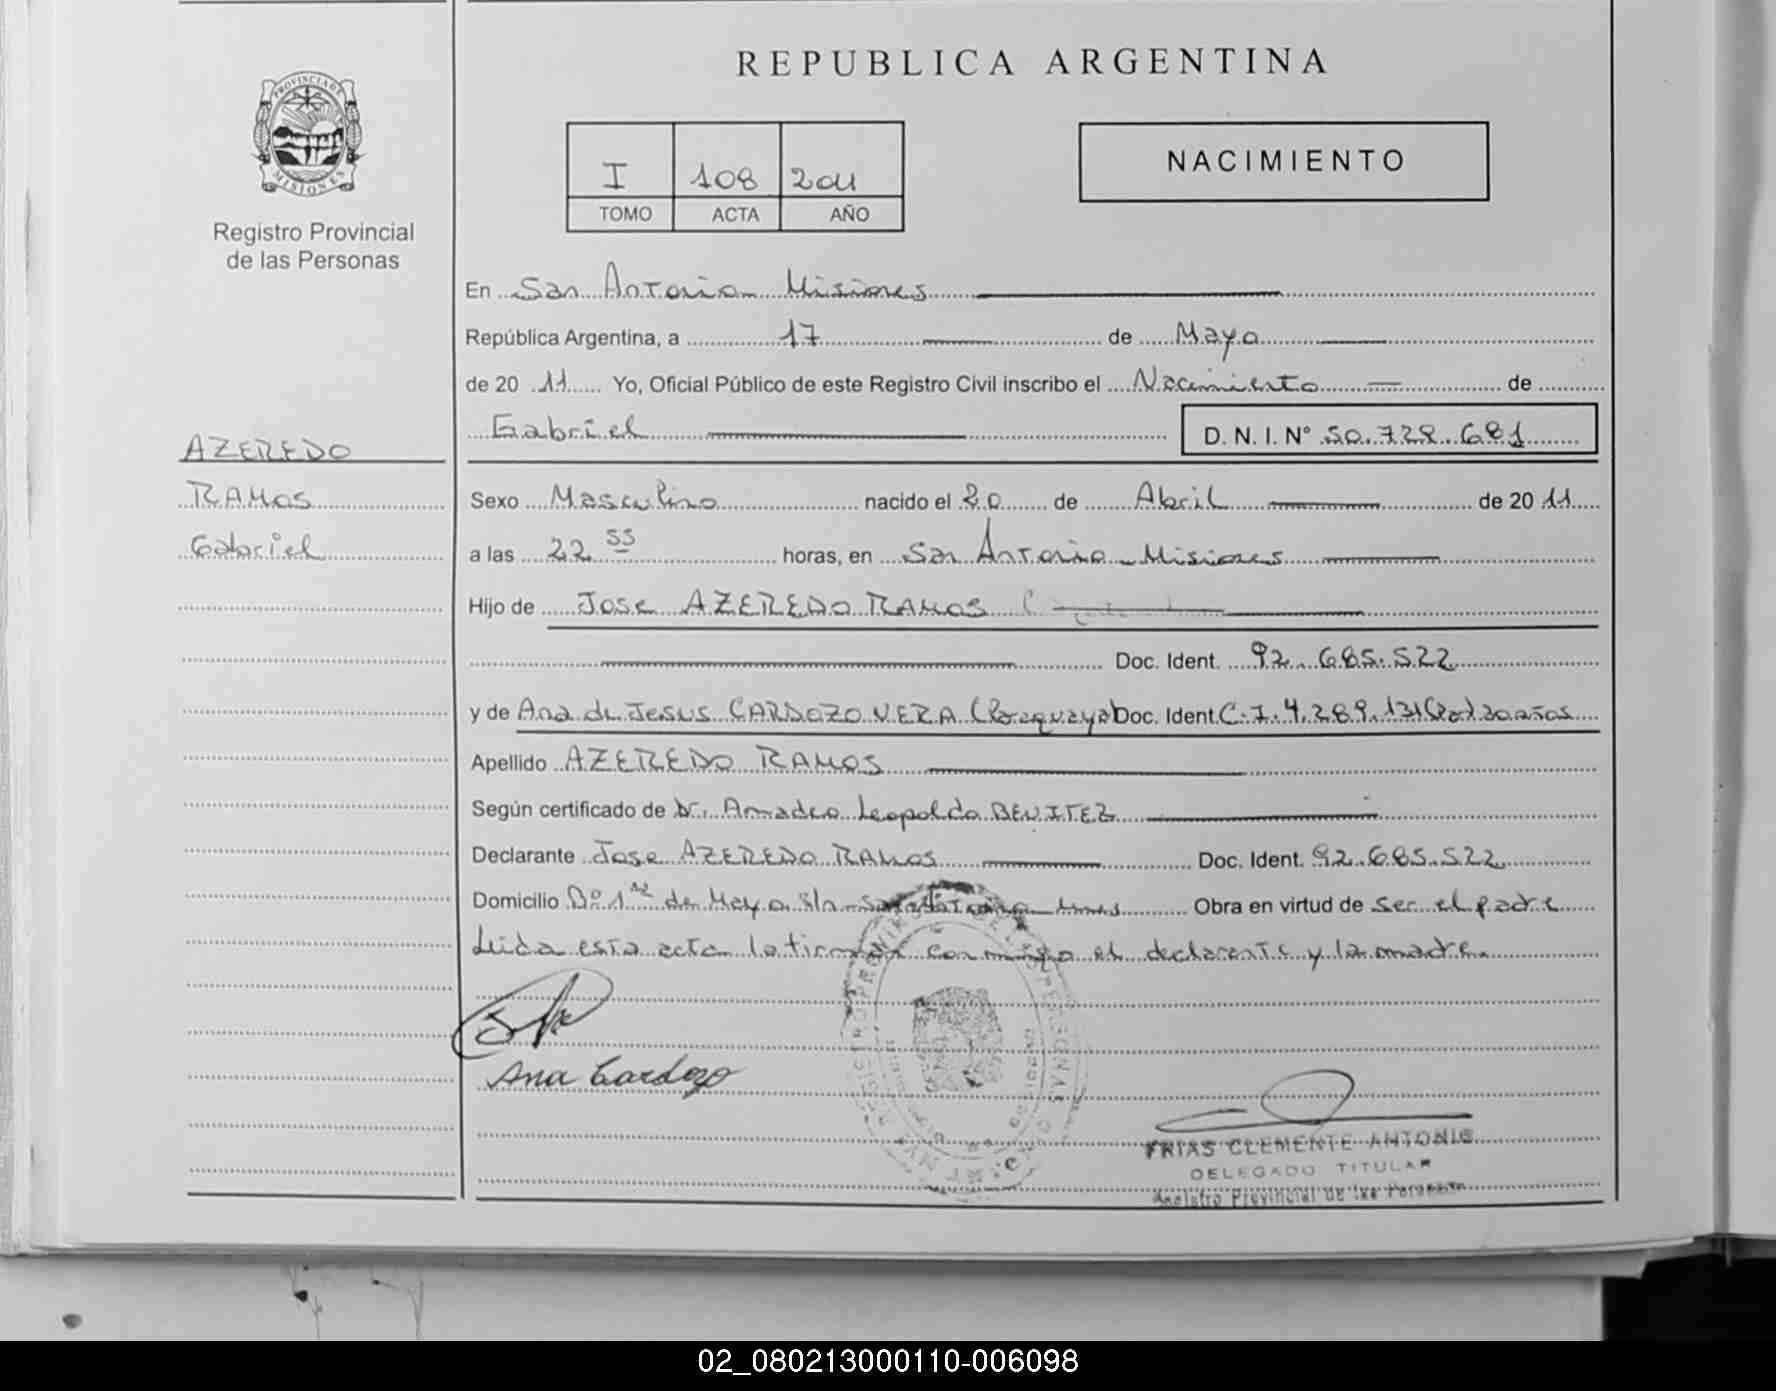 REPUBLICA ARGENTINA
PROVINCIA DE
MISIONES
Registro Provincial
de las Personas
I 108 2011
TOMO ACTA AÑO
NACIMIENTO
En San Antonio Misiones
República Argentina, a 17 de Mayo
de 20 11 Yo, Oficial Público de este Registro Civil inscribo el Nacimiento de
Gabriel D. N. I. N° 50.728.681
AZEREDO
RAMOS
Gabriel
Sexo Masculino nacido el 20 de Abril de 20 11
a las 22 55 horas, en San Antonio - Misiones
Hijo de Jose AZEREDO RAMOS
Doc. Ident. 92.685.522
y de Ana de Jesus CARDOZO VERA (Paraguaya) Doc. Ident. C.I. 4.289.131 (Py) 30 años
Apellido AZEREDO RAMOS
Según certificado de Dr. Amadeo Leopoldo BENITEZ
Declarante Jose AZEREDO RAMOS Doc. Ident. 92.685.522
Domicilio Bº 1º de Mayo S/n - San Antonio Mnes Obra en virtud de ser el padre
Leida esta acta la firman conmigo el declarante y la madre
Ana Cardozo
FRIAS CLEMENTE ANTONIO
DELEGADO TITULAR
Registro Provincial de las Personas
02_080213000110-006098